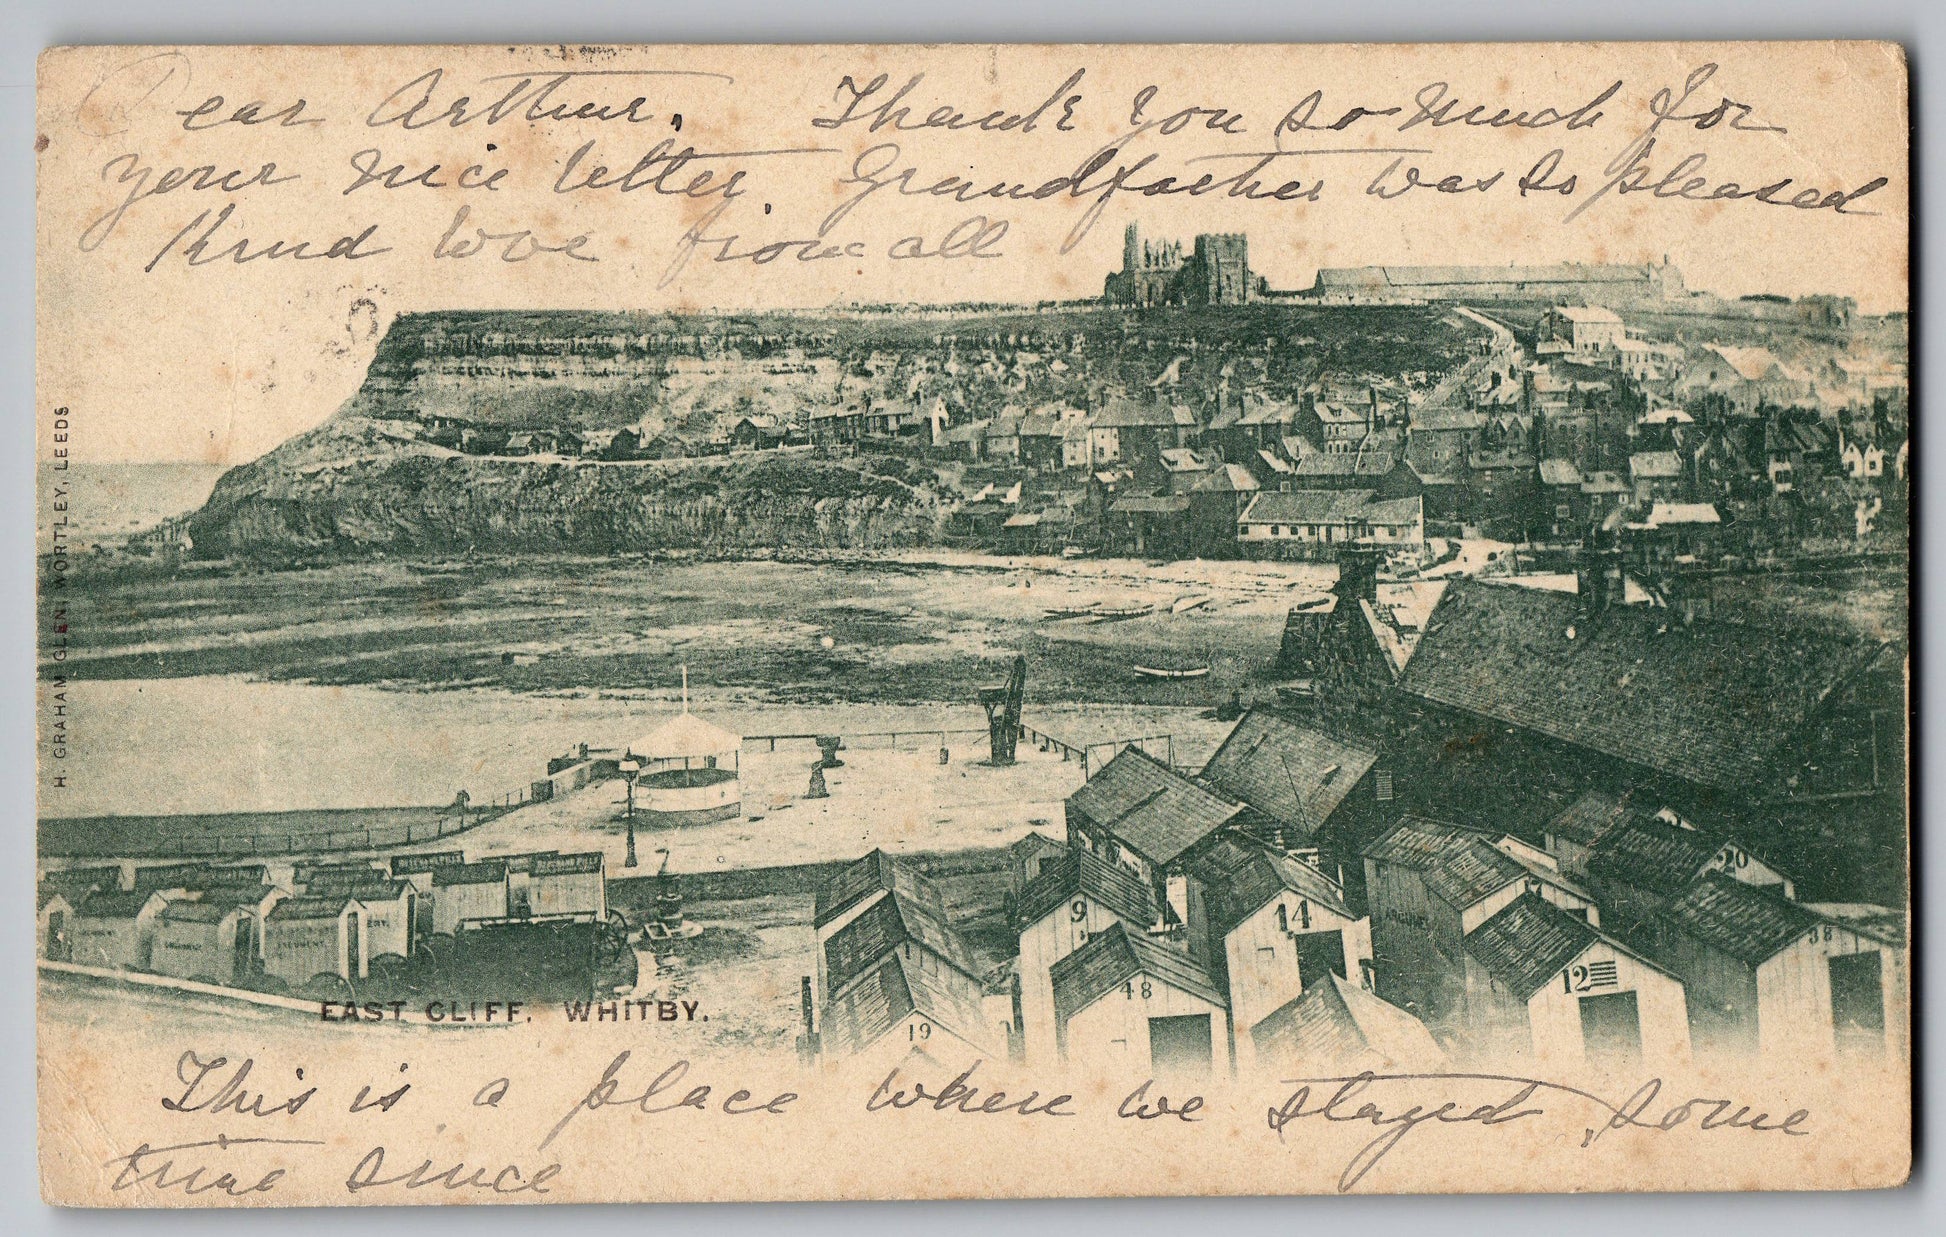 Dear Arthur. Thank you so much for
your nice letter, Grandfather was so pleased
Kind love from all
H. GRAHAM GLEN WORTLEY, LEEDS
9
14
20
38
48
12
19
EAST CLIFF, WHITBY.
This is a place where we stayed, some
time since